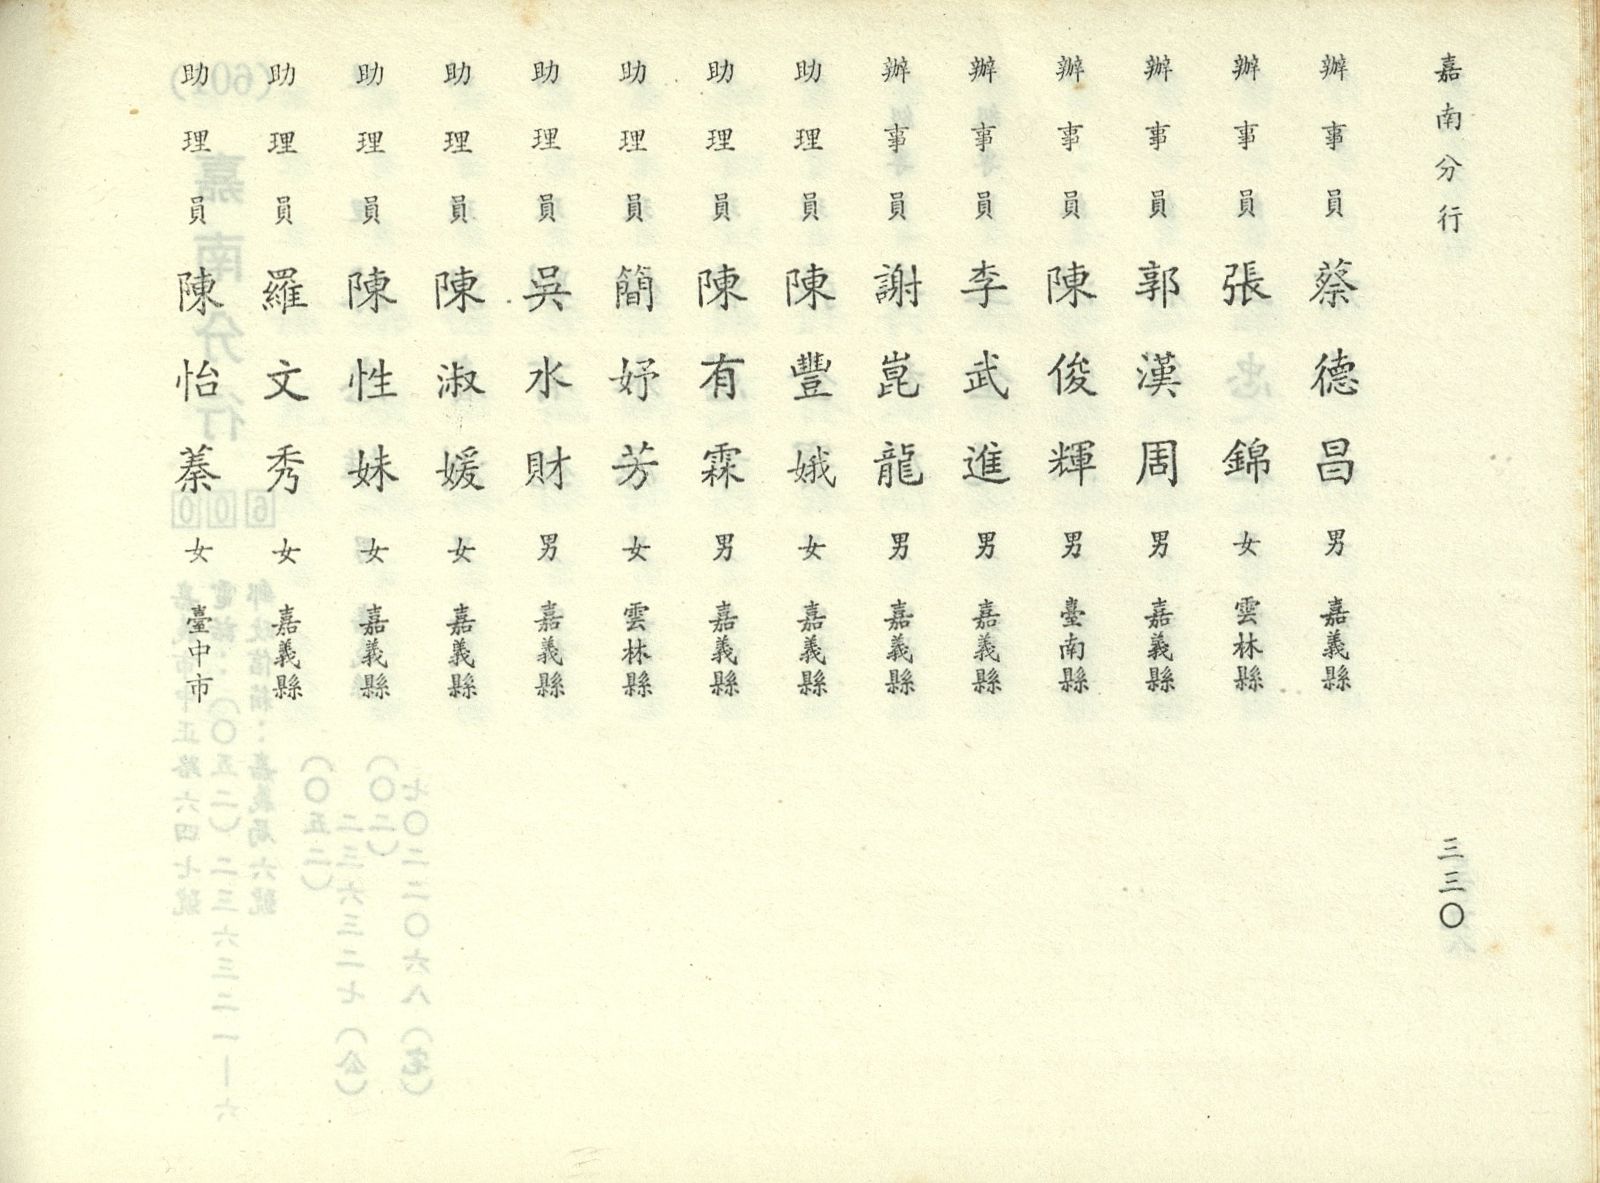 嘉南分行
三三〇
辦事員 蔡德昌 男 嘉義縣
辦事員 張錦 女 雲林縣
辦事員 郭漢周 男 嘉義縣
辦事員 陳俊輝 男 臺南縣
辦事員 李武進 男 嘉義縣
辦事員 謝崑龍 男 嘉義縣
助理員 陳豐娥 女 嘉義縣
助理員 陳有霖 男 嘉義縣
助理員 簡妤芳 女 雲林縣
助理員 吳水財 男 嘉義縣
助理員 陳淑媛 女 嘉義縣
助理員 陳性妹 女 嘉義縣
助理員 羅文秀 女 嘉義縣
助理員 陳怡蓁 女 臺中市